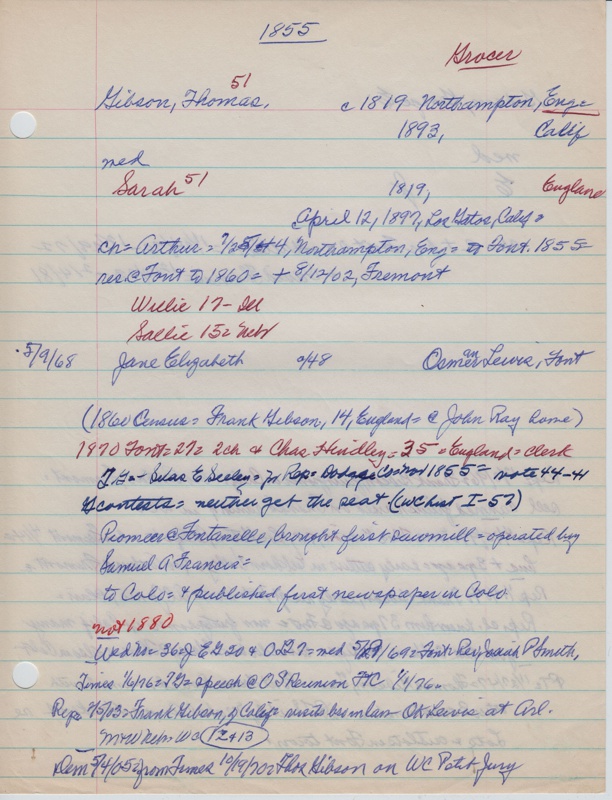 1855
Grocer
Gibson, Thomas, 51 c 1819 Northampton, Eng=
1893, Calif
med
Sarah 51 1819, England
April 12, 1897, Los Gatos, Calif =
ch = Arthur = 4, Northampton, Eng = to Font. 1855
res. @ Font to 1860 = + 8/12/02, Fremont
Willie 17 - Ill
Sallie 15 = Nebr
5/9/68 Jane Elizabeth c/48 Osman Lewis, Font
(1860 Census = Frank Gibson, 14, England = @ John Ray home)
1870 Font = 27 = 2ch & Chas Hindley = 35 = England = clerk
T.G. - Silas E Seeley = for Rep = Dodge Co = Nov 1855 = vote 44-41
contests = neither get the seat (WC hist I-57)
Pioneer @ Fontanelle, brought first sawmill = operated by
Samuel A Francis =
to Colo = & published first newspaper in Colo
not 1880
Wed No = 36 = J E G 20 & O L 27 = med 5/9/69 = Font = Rev Josiah P Smith,
Times 1/6/76 = TG = speech @ OS Reunion FtC 1/1/76 =
Rep = 2/5/03 = Frank Gibson, of Calif = visits bro in law OK Lewis at Arl.
M & W Rebr = Wa 12 & 13
Dem 5/4/05 = from Times 10/19/70 = Thos Gibson on WC Petit Jury